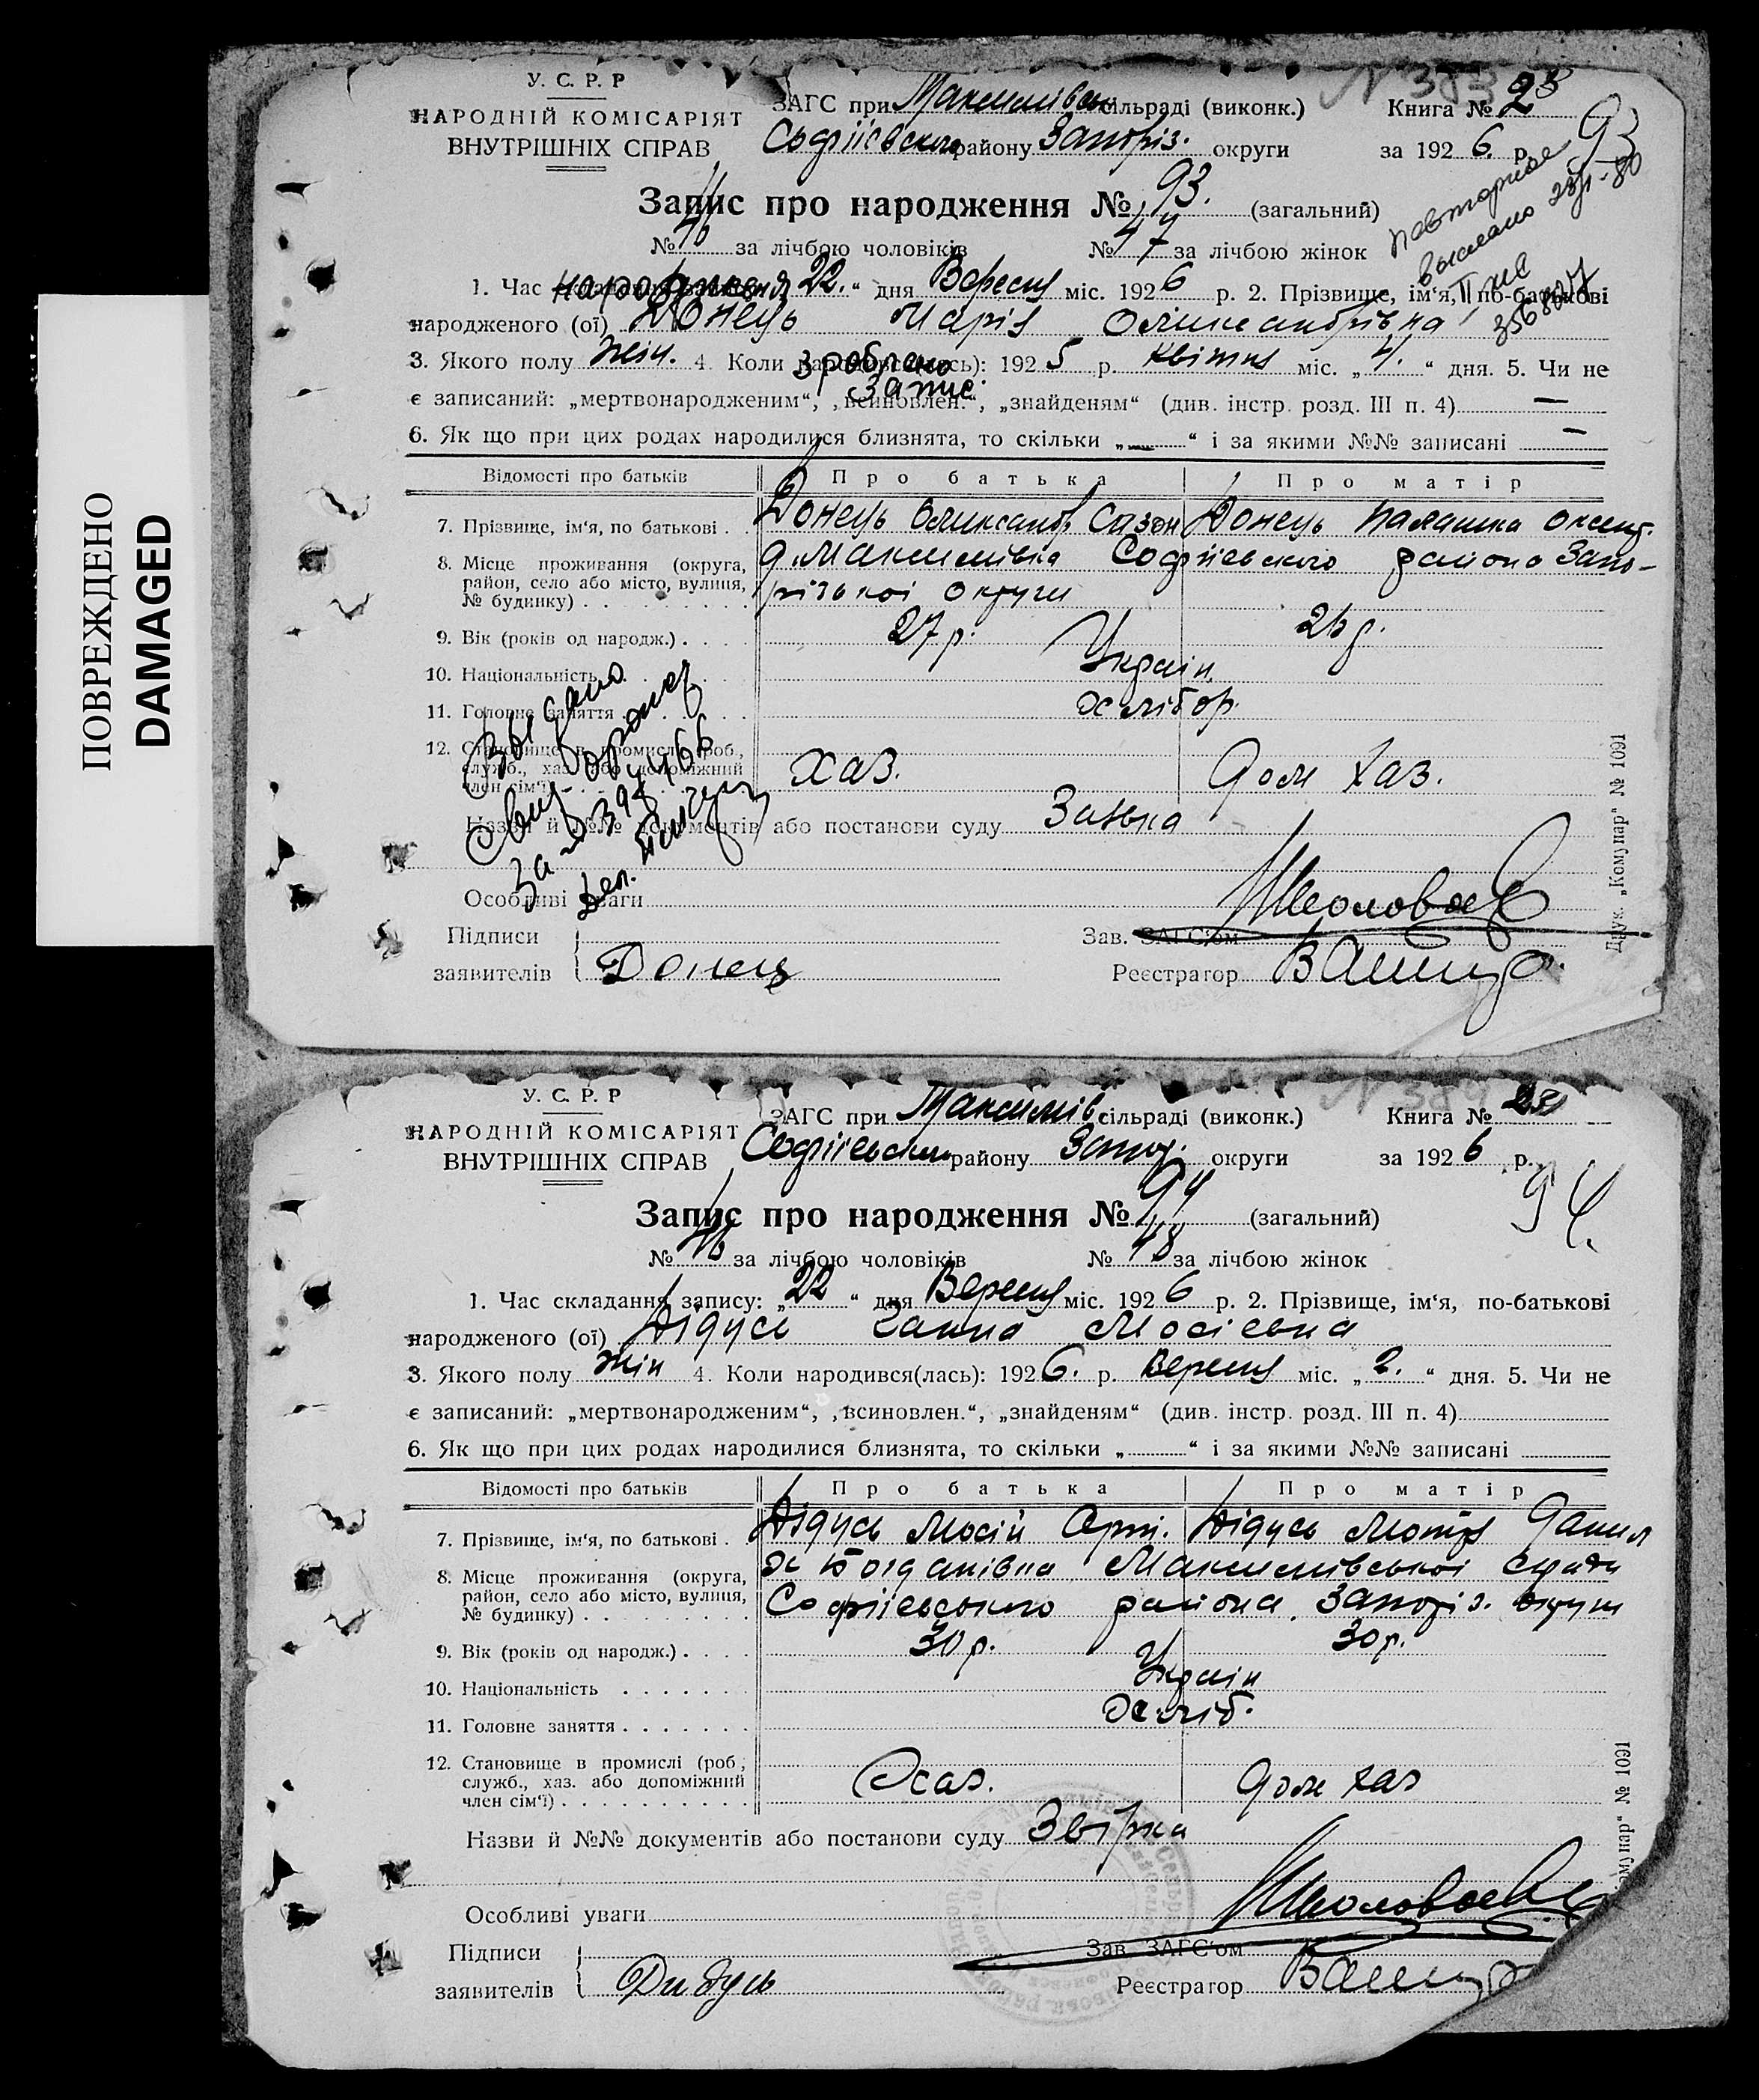 ПОВРЕЖДЕНО
DAMAGED
У. С. Р. Р
НАРОДНІЙ КОМІСАРІЯТ
ВНУТРІШНІХ СПРАВ
N 383
ЗАГС при Максимівск. сільраді (виконк.) Книга № 23
Софіївского району Запоріз. округи за 1926. р.
93
Запис про народження № 93. (загальний)
№ 46 за лічбою чоловіків № 47 за лічбою жінок
повторное
выслано
1. Час народження „22.“ дня Вересня міс. 1926 р. 2. Прізвище, ім‘я, по-батькові
народженого (ої) Донець Марія Олександрівна
3. Якого полу жін. 4. Коли зроблено запис: 1925 р. квітня міс. „4.“ дня. 5. Чи не
є записаний: „мертвонародженим“, „всиновлен.“, „знайденям“ (див. інстр. розд. III п. 4) —
6. Як що при цих родах народилися близнята, то скільки „—“ і за якими №№ записані —
Відомості про батьків Про батька Про матір
7. Прізвище, ім‘я, по батькові . . Донець Олександ. Сазон Донець Палашка
8. Місце проживання (округа, район, село або місто, вулиця, № будинку) . . . . . . . . . Максимівка Софіївского района Запо-
різької округи
9. Вік (років од народж.) . . . . 27 р. 26 р.
10. Національність . . . . . . . Україн.
11. Головне заняття . . . . . . . хлібор.
12. Становище в промислі (роб., служб., хаз. або допоміжний член сім‘ї) . . . . . . . . . . хаз. дом хаз.
Назви й №№ документів або постанови суду Заявка
Особливі уваги
Підписи
заявителів Донец
Зав. ЗАГС‘ом
Реєстратор
Друк. „Комунар“ № 1091
У. С. Р. Р
НАРОДНІЙ КОМІСАРІЯТ
ВНУТРІШНІХ СПРАВ
N 384
ЗАГС при Максимів. сільраді (виконк.) Книга № 23
Софіївського району Запор. округи за 1926 р.
94.
Запис про народження № 94 (загальний)
№ 46 за лічбою чоловіків № 48 за лічбою жінок
1. Час складання запису: „22“ дня Вересня міс. 1926 р. 2. Прізвище, ім‘я, по-батькові
народженого (ої) Дідусь Ганна Мосіевна
3. Якого полу жін 4. Коли народився(лась): 1926. р. Вересня міс. „2.“ дня. 5. Чи не
є записаний: „мертвонародженим“, „всиновлен.“, „знайденям“ (див. інстр. розд. III п. 4)
6. Як що при цих родах народилися близнята, то скільки „ “ і за якими №№ записані
Відомості про батьків Про батька Про матір
7. Прізвище, ім‘я, по батькові . Дідусь Мосій Дідусь Мотря Данил
8. Місце проживання (округа, район, село або місто, вулиця, № будинку) . . . . . . . . . х Богданівна Максимівської с/ради
Софіївського района. Запоріз. округи
9. Вік (років од народж.) . . . . 30 р. 30 р.
10. Національність . . . . . . . Україн
11. Головне заняття . . . . . . . хліб.
12. Становище в промислі (роб., служб., хаз. або допоміжний член сім‘ї) . . . . . . . . . . хаз. дом хаз
Назви й №№ документів або постанови суду Звірка
Особливі уваги
Підписи
заявителів Дидусь
Зав. ЗАГС‘ом
Реєстратор
„Комунар“ № 1091